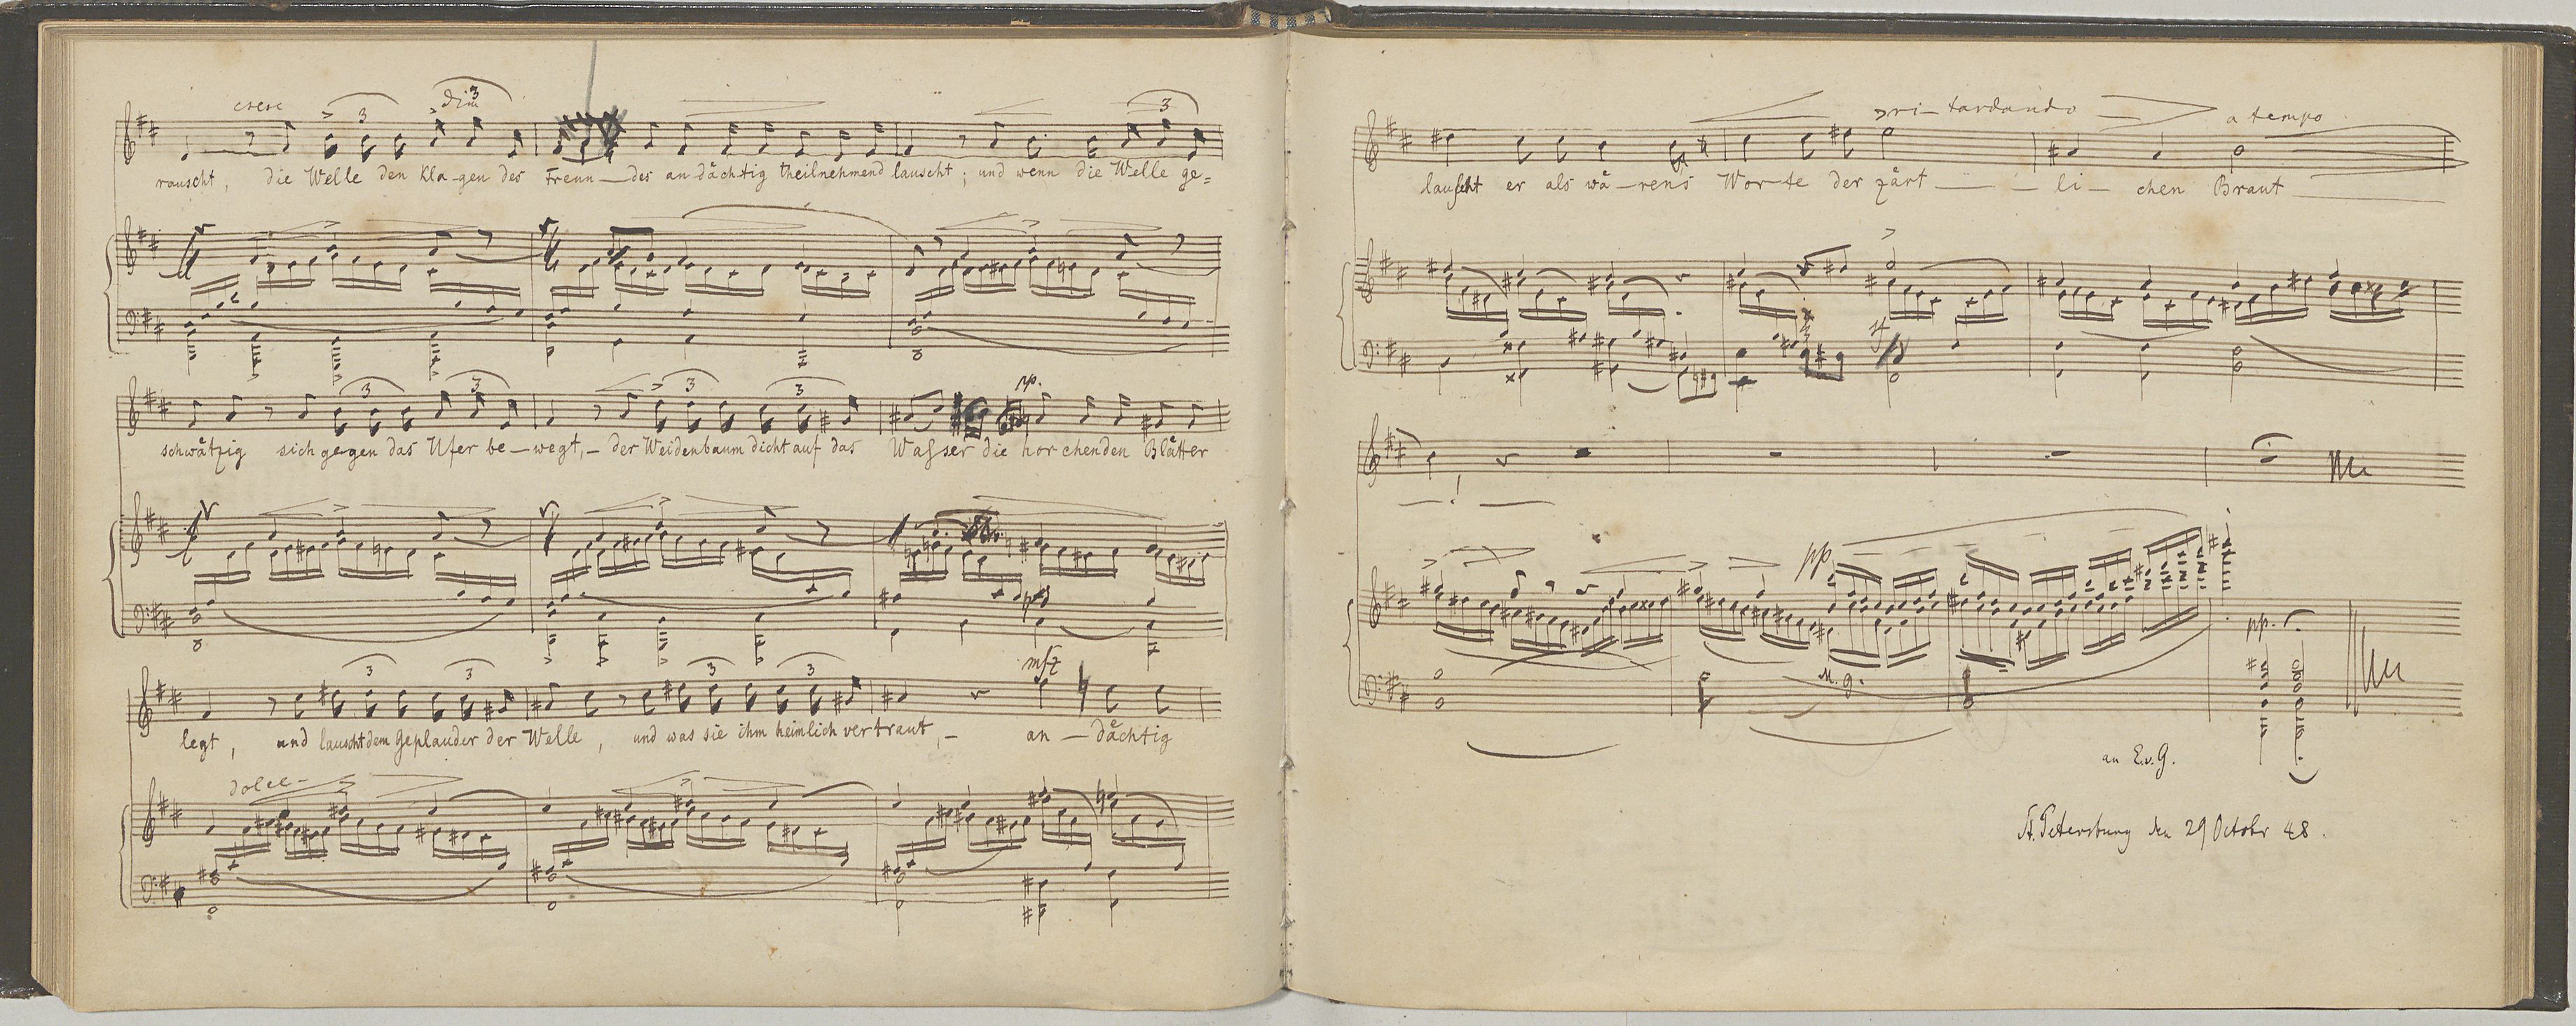 cresc dim
3 3 3
rauscht, die Welle den Kla-gen des Freun—des an-dächtig theilnehmend lauscht; und wenn die Welle ge=
pp.
3 3 3 3
schwätzig sich gegen das Ufer be—wegt,— der Weidenbaum dicht auf das Wasser die horchenden Blätter
mfz
3 3 3 3
legt, und lauscht dem Geplauder der Welle, und was sie ihm heimlich vertraut,— an—dächtig
dolce
ri—tardando a tempo
lauscht er als wä—rens Wor-te der zärt———li—chen Braut
—!—
pp
M. g.
pp.
an E.v.G.
St. Petersburg den 29 Octobr 48.